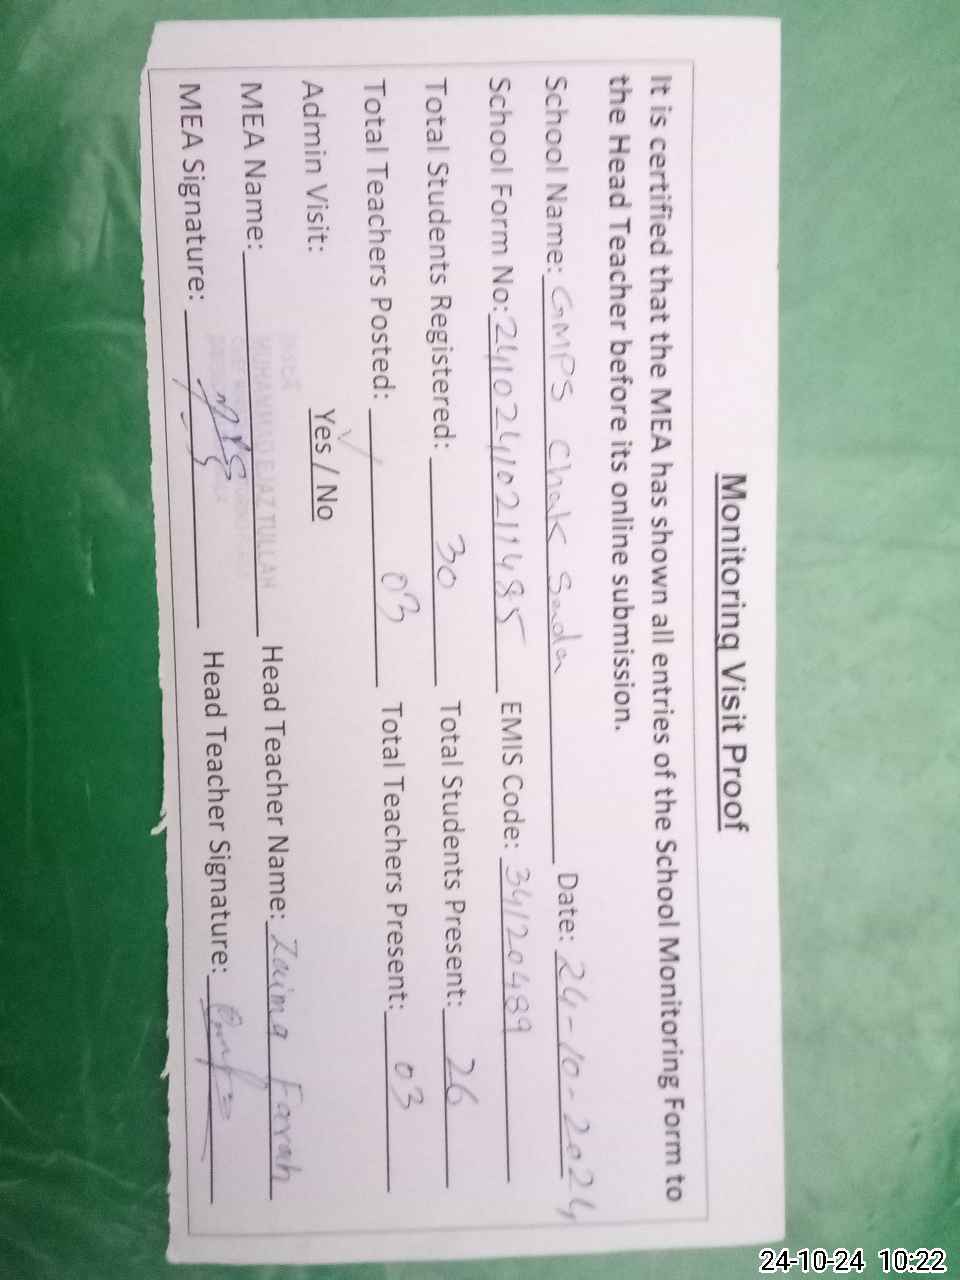 Monitoring Visit Proof
It is certified that the MEA has shown all entries of the School Monitoring Form to
the Head Teacher before its online submission.
School Name: GMPS Chak Sada Date: 24-10-2024
School Form No: 24102410211485 EMIS Code: 34120489
Total Students Registered: 30 Total Students Present: 26
Total Teachers Posted: 03 Total Teachers Present: 03
Admin Visit: Yes / No
MEA Name: MUHAMMAD EJAZ ULLAH Head Teacher Name: Zaima Farah
MEA Signature: Head Teacher Signature:
24-10-24 10:22